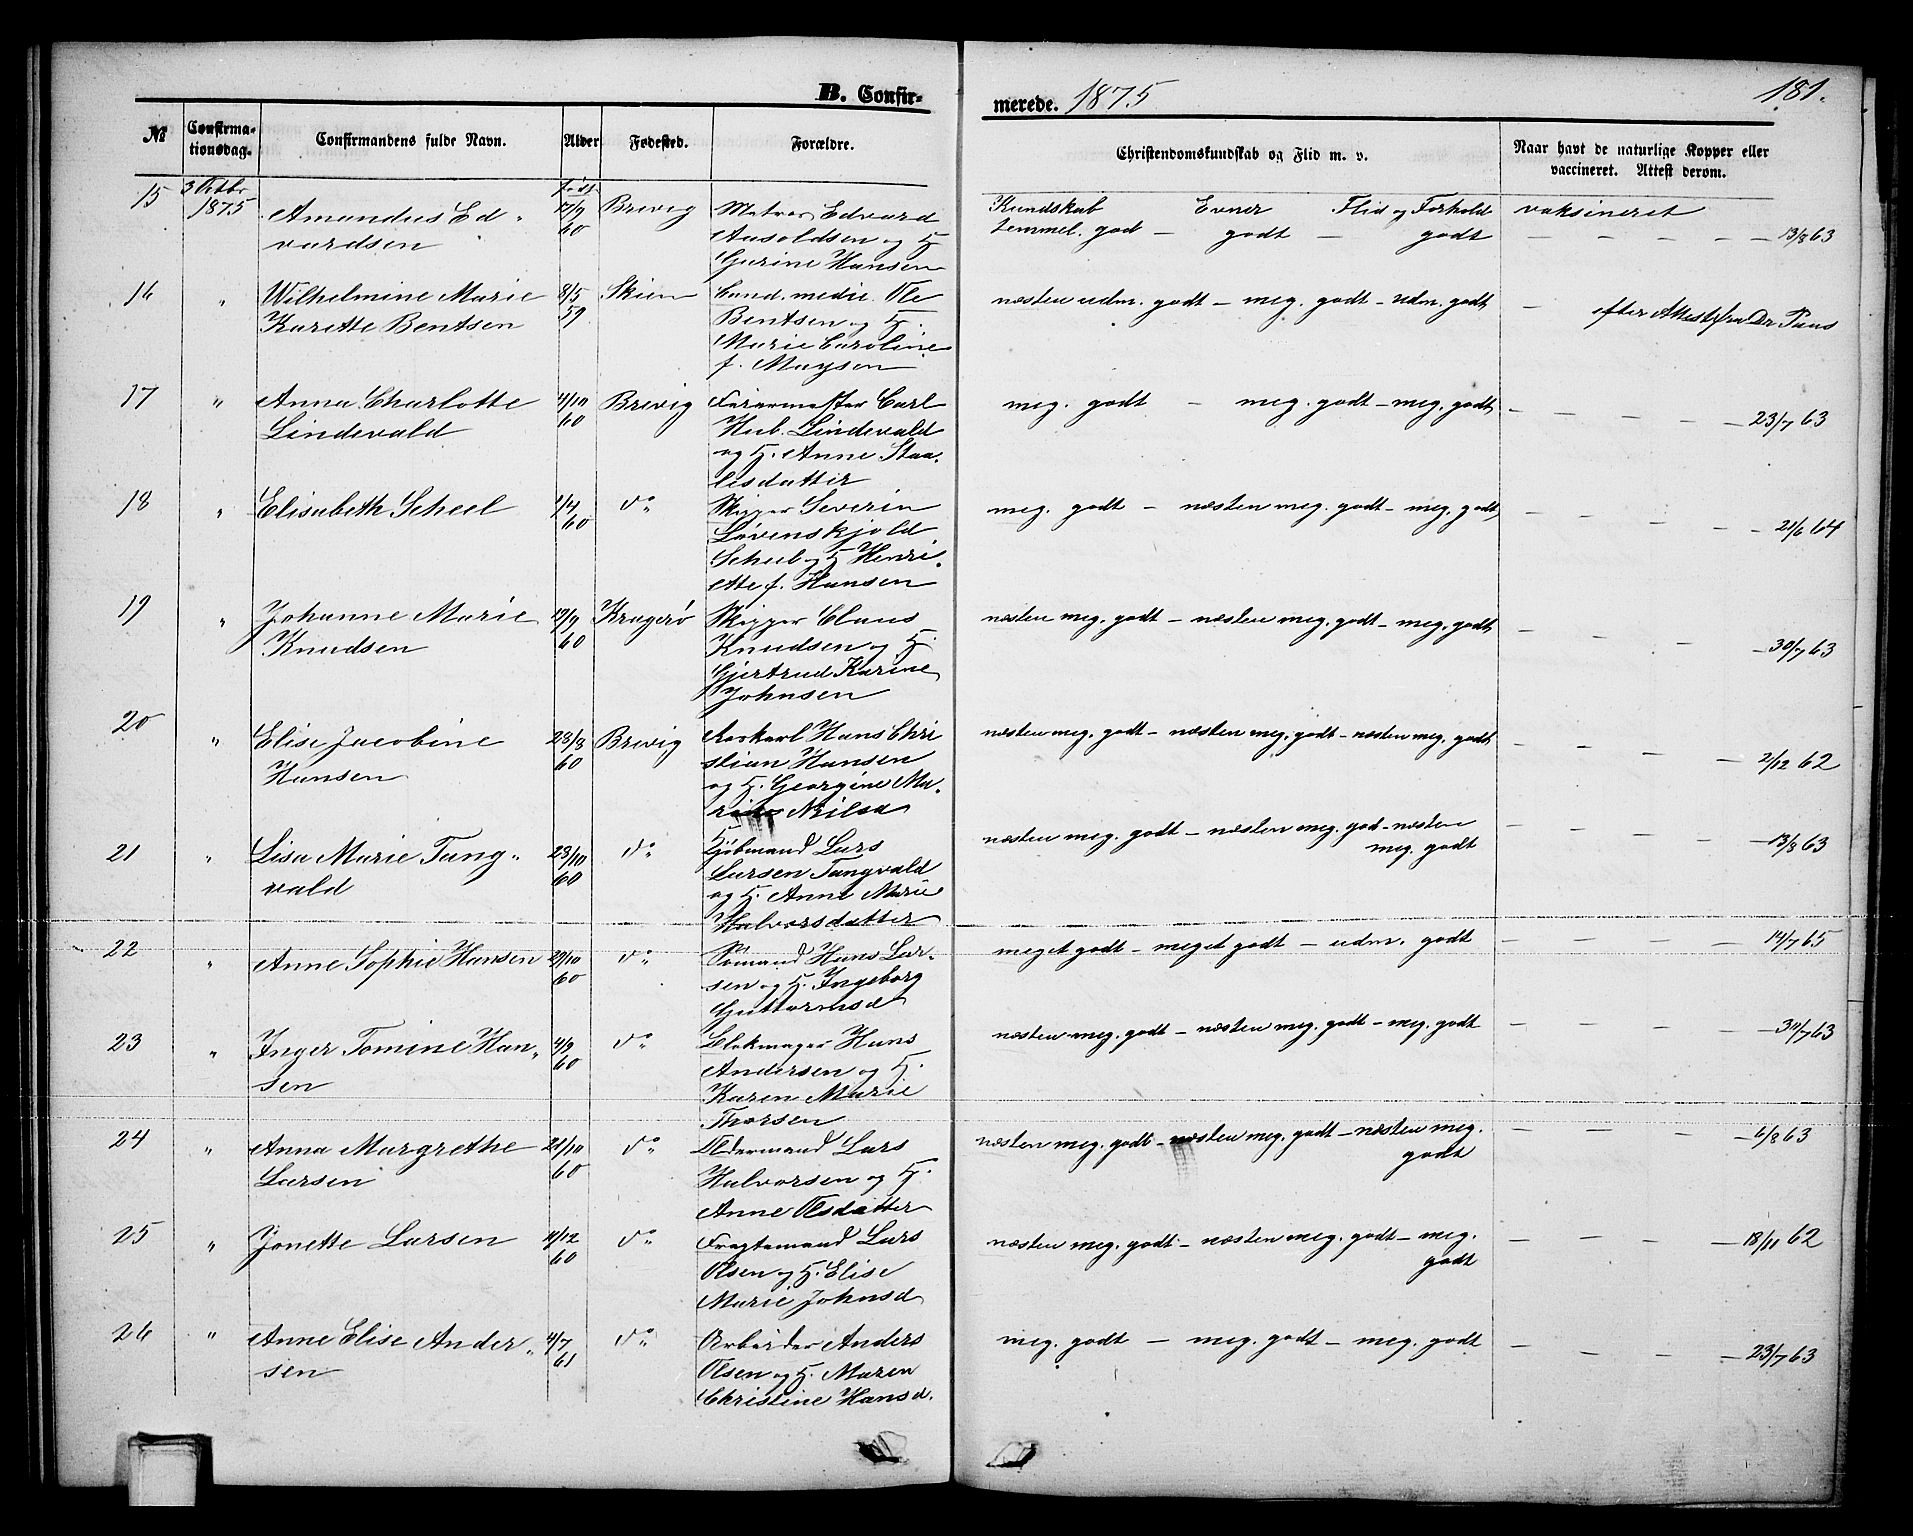 B. Confir-
merede. 1875
181.
№
Confirma-
tionsdag.
Confirmandens fulde Navn.
Alder
Fødested.
Forældre.
Christendomskundskab og Flid m. v.
Naar havt de naturlige Kopper eller
vaccineret. Attest derom.
15
3 Octbr
1875
Amandus Ed-
vardsen
født
17/9
60
Brevig
Matros Edvard
Aasoldsen og H.
Gurine Hansen
Kundskab Evner Flid og Forhold
temmel. god — godt — godt
vaksineret
— — — — — 13/8 63
16
"
Wilhelmine Marie
Karette Bentsen
8/5
59
Skien
Cand. medic. Ole
Bentsen og H.
Marie Caroline
f. Muysen
næsten udm. godt — meg. godt — udm. godt
— efter Attest fra Dr Paus
17
"
Anna Charlotte
Lindevald
4/10
60
Brevig
Farvermester Carl
Hub. Lindevald
og H. Anne Staa-
lesdatter
meg. godt — meg. godt — meg. godt
— — — — — 23/7 63
18
"
Elisabeth Scheel
1/4
60
do
Skipper Severin
Løvenskjold
Scheel og H. Henri-
ette f. Hansen
meg. godt — næsten meg. godt — meg. godt
— — — — — 21/6 64
19
"
Johanne Marie
Knudsen
19/9
60
Kragerø
Skipper Claus
Knudsen og H.
Gjertrud Karine
Johnsen
næsten meg. godt — næsten meg. godt — meg. godt
— — — — 30/7 63
20
"
Elise Jacobine
Hansen
28/8
60
Brevig
Aaskarl Hans Chri
stian Hansen
og H. Georgine Ma-
rie Nilsd
næsten meg. godt — næsten meg. godt — næsten meg. godt
— — — — 2/12 62
21
"
Lisa Marie Tang-
vald
23/10
60
do
Kjøbmand Lars
Larsen Tangvald
og H. Anne Marie
Halvorsdatter
næsten meg. godt — næsten meg. god — næsten
meg. godt
— — — — — 13/8 63
22
"
Anne Sophie Hansen
29/10
60
do
Sømand Hans Lar-
sen og H. Ingeborg
Guttormsd
meget godt — meget godt — udm. godt
— — — — 14/7 65
23
"
Inger Tomine Han-
sen
4/9
60
do
Blokmager Hans
Andersen og H.
Karen Marie
Thorsen
næsten meg. godt — næsten meg. godt — meg. godt
— — — — 30/7 63
24
"
Anna Margrethe
Larsen
21/10
60
do
Oldermand Lars
Halvorsen og H.
Anne Olsdatter
næsten meg. godt — næsten meg. godt — næsten meg.
godt
— — — — 6/8 63
25
"
Jonette Larsen
11/12
60
do
Fragtemand Lars
Olsen og H. Elise
Marie Johnsd
næsten meg. godt — næsten meg. godt — meg.
godt
— — — — 18/11 62
26
"
Anne Elise Ander-
sen
4/7
61
do
Arbeider Anders
Olsen og H. Maren
Christine Hansd.
meg. godt — meg. godt — meg. godt
— — — — 23/7 63